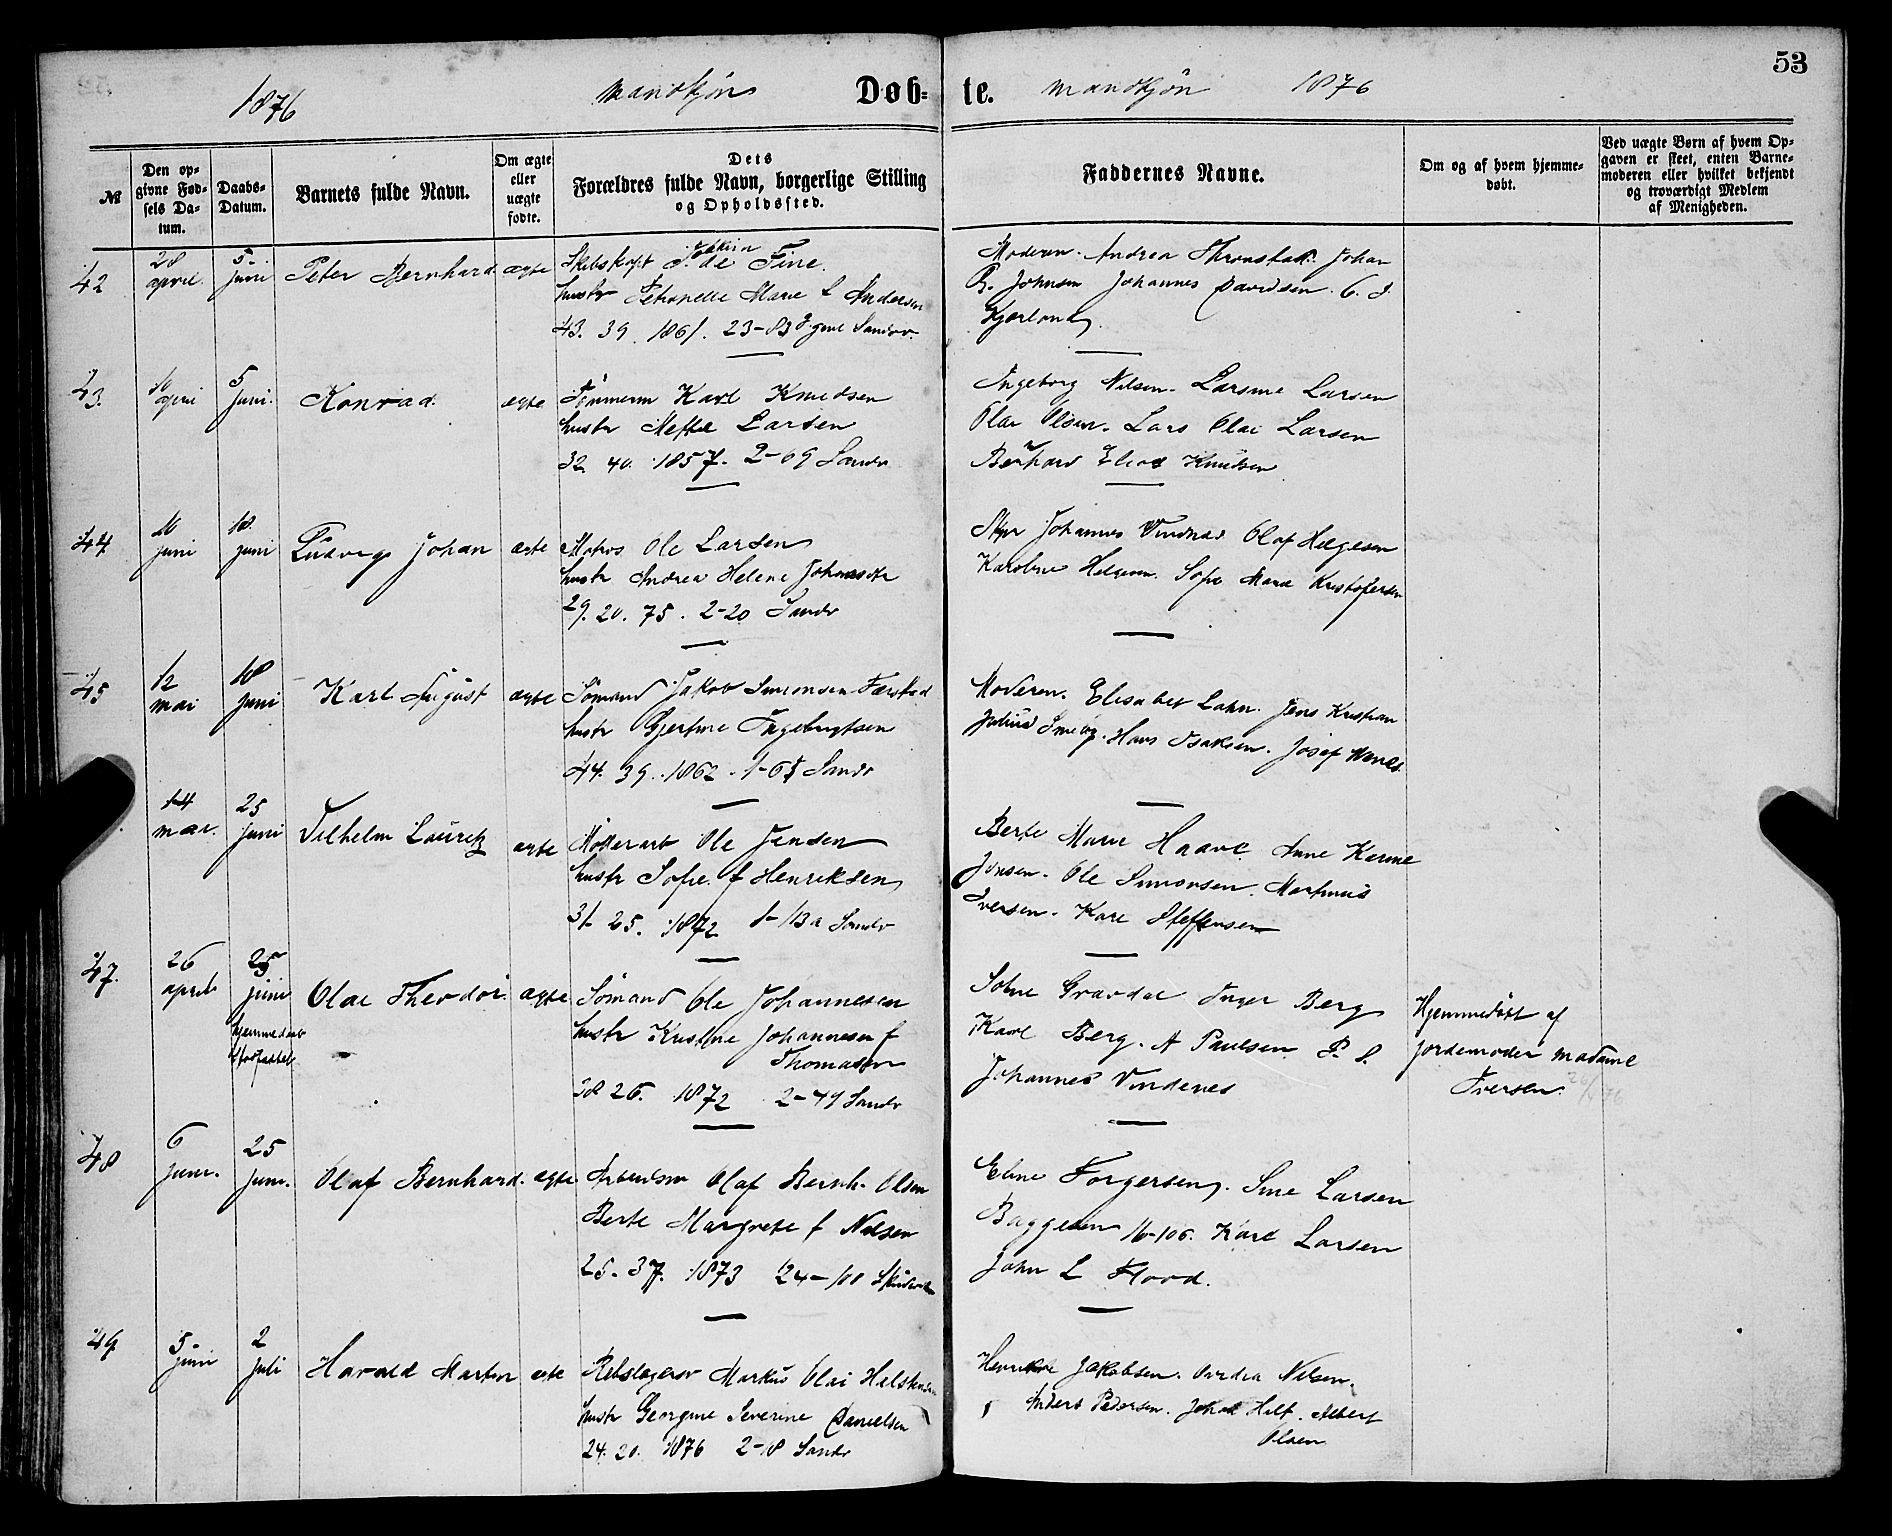 53
1876 Mandkjøn Døb= te. Mandkjøn 1876
№
Den op=
givne Fød=
sels Da=
tum.
Daabs=
Datum.
Barnets fulde Navn.
Om ægte
eller
uægte
fødte.
Dets
Forældres fulde Navn, borgerlige Stilling
og Opholdssted.
Faddernes Navne.
Om og af hvem hjemme=
døbt.
Ved uægte Børn af hvem Op=
gaven er skeet, enten Barne=
moderen eller hvilket bekjendt
og troværdigt Medlem
af Menigheden.
42
28
april
5
juni
Peter Bernhard
ægte
de Fine
hustr Petronelle Marie f Andersen
43. 39. 1861. 23-83
Moderen. Andrea Johan
Johnsen Johannes Davidsen
43.
5
juni
Konrad
ægte
Tømmerm Karl Knudsen
hustr Mette Larsen
32 40. 1857. 2-69 Sandv
Ingeborg Nilsen. Larsine Larsen
Olai Olsen. Lars Olai Larsen
Knudsen
44
10
juni
18
juni
Ludvig Johan
ægte
Matros Ole Larsen
hustr Andrea Helene
29. 20. 75. 2-20 Sandv
Styr Johannes Vindnes Olaf Helgesen
Karoline Helgesen. Sofie Marie Kristofersen
45
12
mai
18
juni
Karl August
ægte
Sømand Jakob Simonsen
hustr Gjertine Ingebrigtsen
44. 39. 1862. 1-65 Sandv
Moderen. Elisabet Lahn. Jens Kristian
Hans Isaksen. Josef
14
mai
25
juni
Vilhelm Lauritz
ægte
Møllerarb Ole Jensen
hustr Sofie f Henriksen
31 25. 1872 1-113a Sandv
Berte Marie Haave Anne Karine
Jensen. Ole Simonsen. Martinus
Iversen. Kare Steffensen
47.
26
april
25
juni
Olai Theodor
ægte
Sømand Ole Johannesen
hustr Kristine Johannesen f
Thomasen
28 26. 1872 2-49 Sandv
Gravdal Inger Berg
Karl Berg. A Paulsen P. S.
Johannes Vindenes
Hjemmedøbt af
jordemoder madame
Iversen.
48
6
juni.
25
juni.
Olaf Bernhard.
ægte
Arbeidsm Olaf Bernh. Olsen
Berte Margrete f Nilsen
25. 37. 1873 24-100
Eline Torgersen. Sine Larsen
Baggesen 16-106. Karl Larsen
John L Flood.
49
5
juni
2
juli
Harald Martin
ægte
Rebslagersv Markus Olai
hustr Georgine Severine Danielsen
24. 20. 1876 2-18 Sandv
Jakobsen. Nilsen.
Anders Pedersen. Albert
Olsen